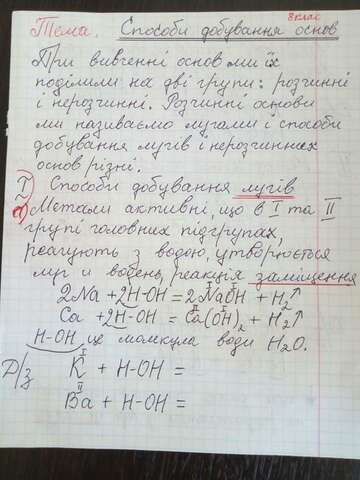 8 клас
Тема. Способи добування основ
При вивченні основ ми їх
поділили на дві групи: розчинні
і нерозчинні. Розчинні основи
ми називаємо лугами і способи
добування лугів і нерозчинних
основ різні.
I) Способи добування лугів
а) Метали активні, що в I та II
групі головних підгрупах,
реагують з водою, утворюється
луг і водень, реакція заміщення
2Na + 2H-OH = 2NaOH + H₂↑
Ca + 2H-OH = Ca(OH)₂ + H₂↑
H-OH це молкула води H₂O.
Д/з K + H-OH =
Ba + H-OH =